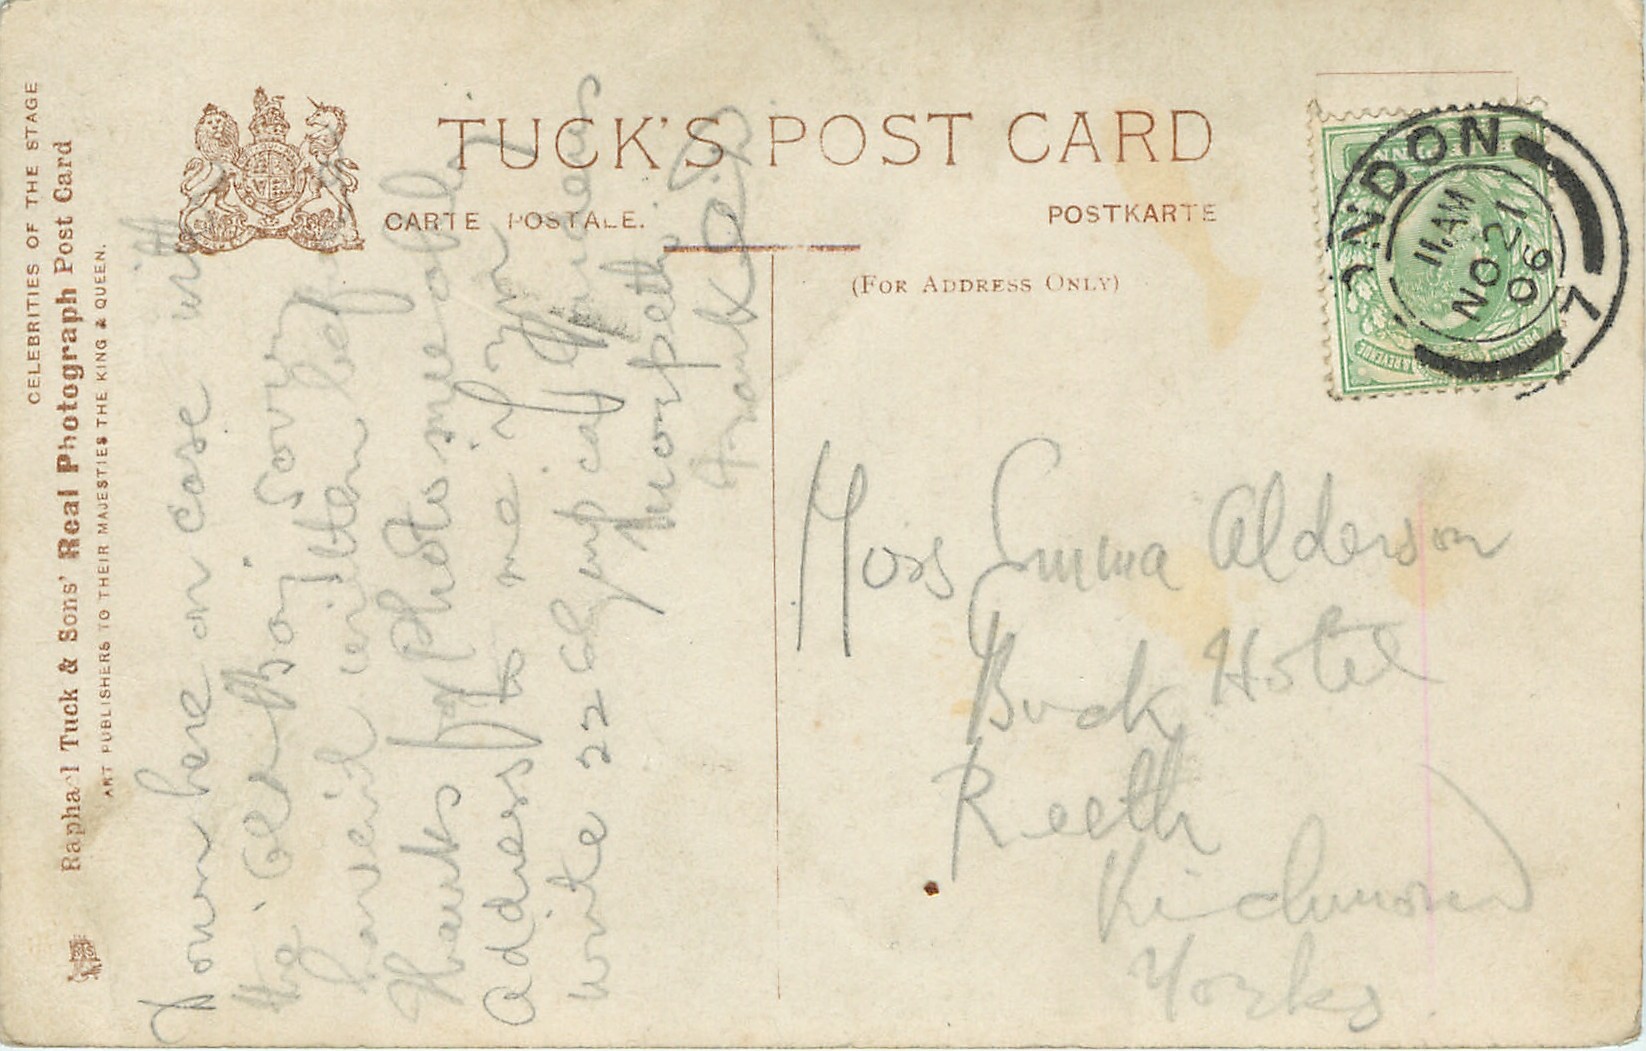 CELEBRITIES OF THE STAGE
Raphael Tuck & Sons' Real Photograph Post Card
ART PUBLISHERS TO THEIR MAJESTIES THE KING & QUEEN.
TUCK'S POST CARD
CARTE POSTALE.
POSTKARTE
(FOR ADDRESS ONLY)
LONDON
11. AM
NO 21
06
7
POSTAGE & REVENUE
down here on case with
the Sorry
havent written before
Thanks for Photo
address to me if you
write 22
Morpeth
Frank
Miss Emma Alderson
Buck Hotel
Reeth
Richmond
Yorks